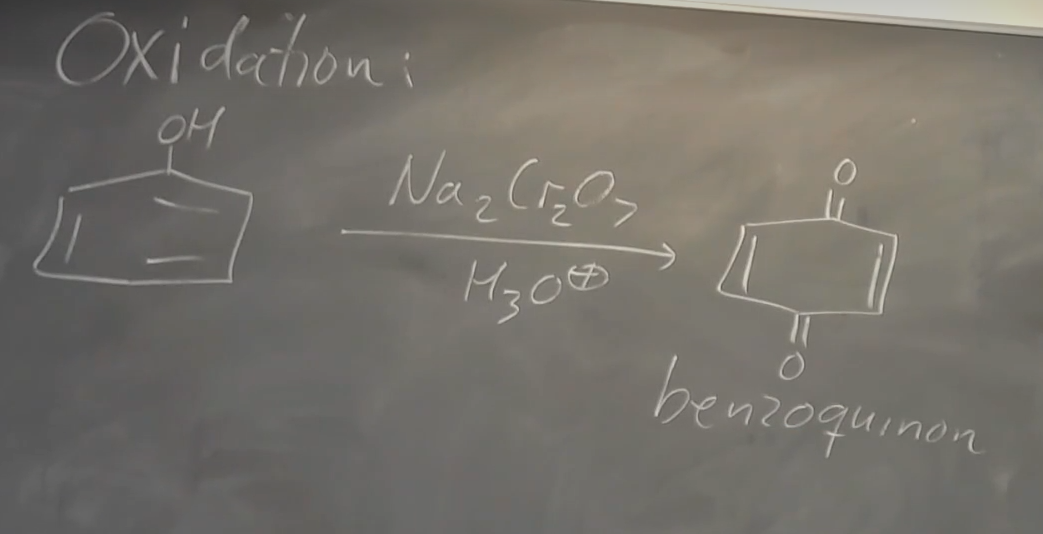 Oxidation:
OH
Na₂Cr₂O₇
H₃O⊕
O
O
benzoquinon